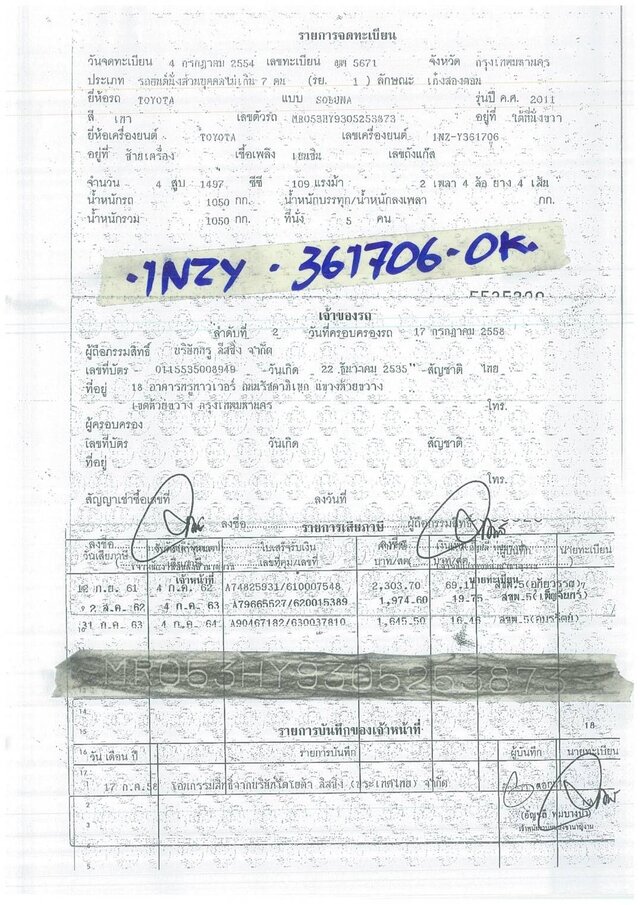 รายการจดทะเบียน
วันจดทะเบียน 4 กรกฎาคม 2554 เลขทะเบียน 5671 จังหวัด กรุงเทพมหานคร
ประเภท รถยนต์นั่งส่วนบุคคลไม่เกิน 7 คน (รย. 1 ) ลักษณะ เก๋งสองตอน
ยี่ห้อรถ TOYOTA แบบ SOLUNA รุ่นปี ค.ศ. 2011
สี เทา เลขตัวรถ MR053HY9305253873 อยู่ที่ ใต้ที่นั่งขวา
ยี่ห้อเครื่องยนต์ TOYOTA เลขเครื่องยนต์ 1NZ-Y361706
อยู่ที่ ซ้ายเครื่อง เชื้อเพลิง เบนซิน เลขถังแก๊ส
จำนวน 4 สูบ 1497 ซีซี 109 แรงม้า 2 เพลา 4 ล้อ ยาง 4 เส้น
น้ำหนักรถ 1050 กก. น้ำหนักบรรทุก/น้ำหนักลงเพลา กก.
น้ำหนักรวม 1050 กก. ที่นั่ง 5 คน
·1NZY · 361706-OK.
เจ้าของรถ
ลำดับที่ 2 วันที่ครอบครองรถ 17 กรกฎาคม 2558
ผู้ถือกรรมสิทธิ์ บริษัทกรู ลีสซิ่ง จำกัด
เลขที่บัตร 0115535008949 วันเกิด 22 ธันวาคม 2535 สัญชาติ ไทย
ที่อยู่ 18 อาคารทรูทาวเวอร์ ถนนรัชดาภิเษก แขวงห้วยขวาง
เขตห้วยขวาง กรุงเทพมหานคร โทร.
ผู้ครอบครอง
เลขที่บัตร วันเกิด สัญชาติ
ที่อยู่
โทร.
สัญญาเช่าซื้อเลขที่ ลงวันที่
ลงชื่อ ผู้ถือกรรมสิทธิ์
รายการเสียภาษี
วันเสียภาษี ใบเสร็จรับเงิน ผู้บันทึก นายทะเบียน
เลขที่คุม/เลขที่
เจ้าหน้าที่ นายทะเบียน
12 ก.ย. 61 4 ก.ค. 62 A74825931/610007548 2,303.70 69.11
2 ส.ค. 62 4 ก.ค. 63 A79665527/620015389 1,974.60 19.75
31 ก.ค. 63 4 ก.ค. 64 A90467182/630037810 1,645.50 16.46
MR053HY9305253873
18
รายการบันทึกของเจ้าหน้าที่
วัน เดือน ปี รายการบันทึก ผู้บันทึก นายทะเบียน
17 ก.ค.58 โอนกรรมสิทธิ์จากบริษัทโตโยต้า ลีสซิ่ง (ประเทศไทย) จำกัด